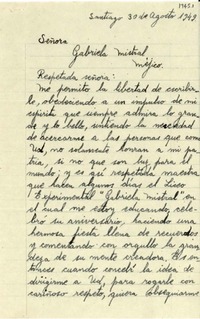 Santiago 30 de Agosto 1949
Señora
Gabriela Mistral
Méjico.
Respetada señora:
Me permito la libertad de escribir-
le, obedeciendo a un impulso de mi
espíritu que siempre admira lo gran-
de y lo bello, sintiendo la necesidad
de acercarme a las personas que como
Ud, no solamente honran a mi pa-
tria, si no que son luz para el
mundo; y es así respetable maestra
que hacen algunos días el Liceo
Experimental "Gabriela Mistral" en
el cual me estoy educando, cele-
bro su aniversario, haciendo una
hermosa fiesta llena de recuerdos
y comentando con orgullo la gran-
deza de su mente creadora. Es en-
tonces cuando concebí la idea de
dirigirme a Ud, para rogarle con
cariñoso respeto, quiera obsequiarme